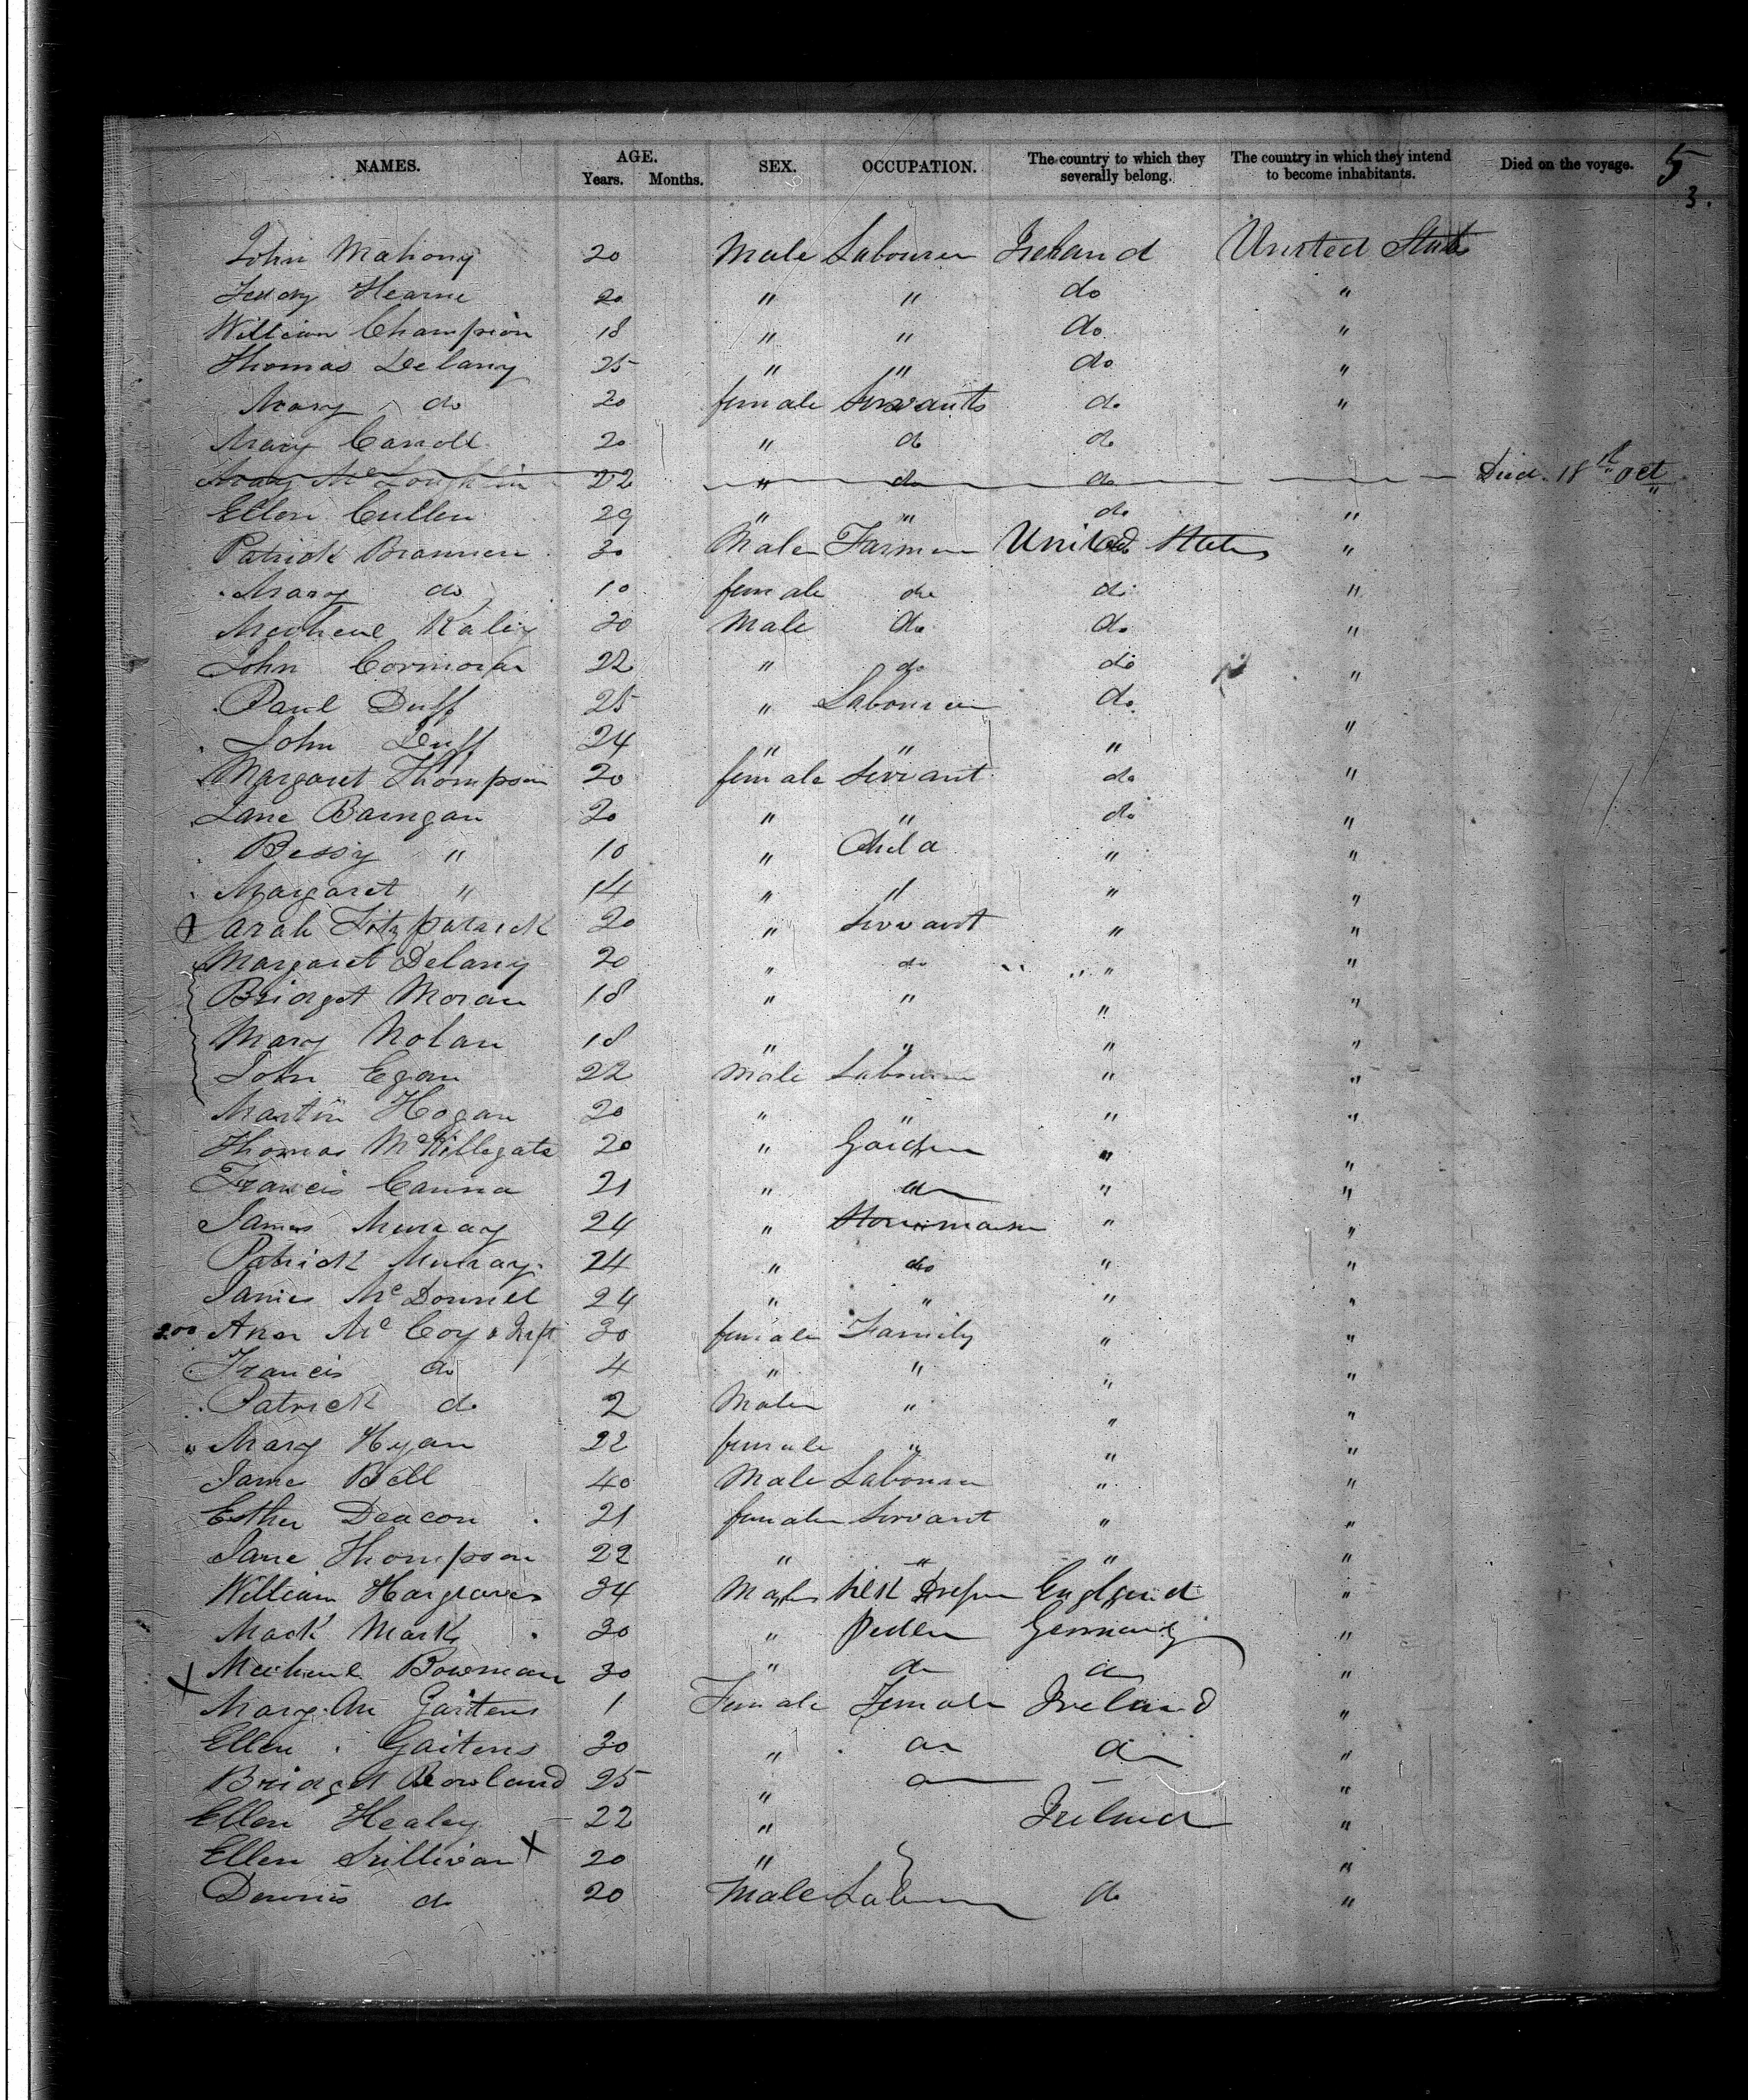 NAMES. AGE. Years. Months. SEX. OCCUPATION. The country to which they severally belong. The country in which they intend to become inhabitants. Died on the voyage. 5
3.
John Mahony 20 Male Labourer Ireland United States
Teddy Hearne 20 " " do "
William Champion 18 " " do "
Thomas Delany 25 " " do "
Mary do 20 female Servants do "
Mary Carroll 20 " do do
Mary McLoughlin 22 " do do Died 18th Oct
Ellen Cullen 29 " " do "
Patrick Brannen 30 Male Farmer United States "
Mary do 10 female do do "
Micheal Kaley 30 Male do do "
John Cormoran 22 " do do "
Paul Duff 25 " Labourer do "
John Duff 24 " " " "
Margaret Thompson 20 female Servant do "
Jane Barngan 20 " " do "
Bessy " 10 " Child " "
Margaret " 14 " " " "
Sarah Fitzpatrick 20 " Servant " "
Margaret Delany 20 " do " "
Bridget Moran 18 " " " "
Mary Nolan 18 " " " "
John Egan 22 Male Labourer " "
Martin Hogan 20 " " " "
Thomas McKillegate 20 " " "
Francis Canna 21 " do " "
James Murray 24 " " "
Patrick Murray 24 " do " "
James McDonnel 24 " " " "
200 Ann McCoy & Inft 30 female Family " "
Francis do 4 " " " "
Patrick do 2 Male " " "
" Mary Hyan 22 female " " "
Jame Bell 40 Male Labourer " "
Esther Deacon 21 female Servant " "
Jane Thompson 22 " " " "
William Hargraves 34 Male Silk Dresser England "
Mack Marks 30 " Pedler Germany "
X Micheal Bowman 30 " do do "
Mary An Gaitens 1 Female Female Ireland "
Ellen Gaitens 30 " do do "
Bridget Rowland 25 " do "
Ellen Healey 22 " Ireland "
Ellen Sullivan X 20 " "
Dennis do 20 Male Labourer do "